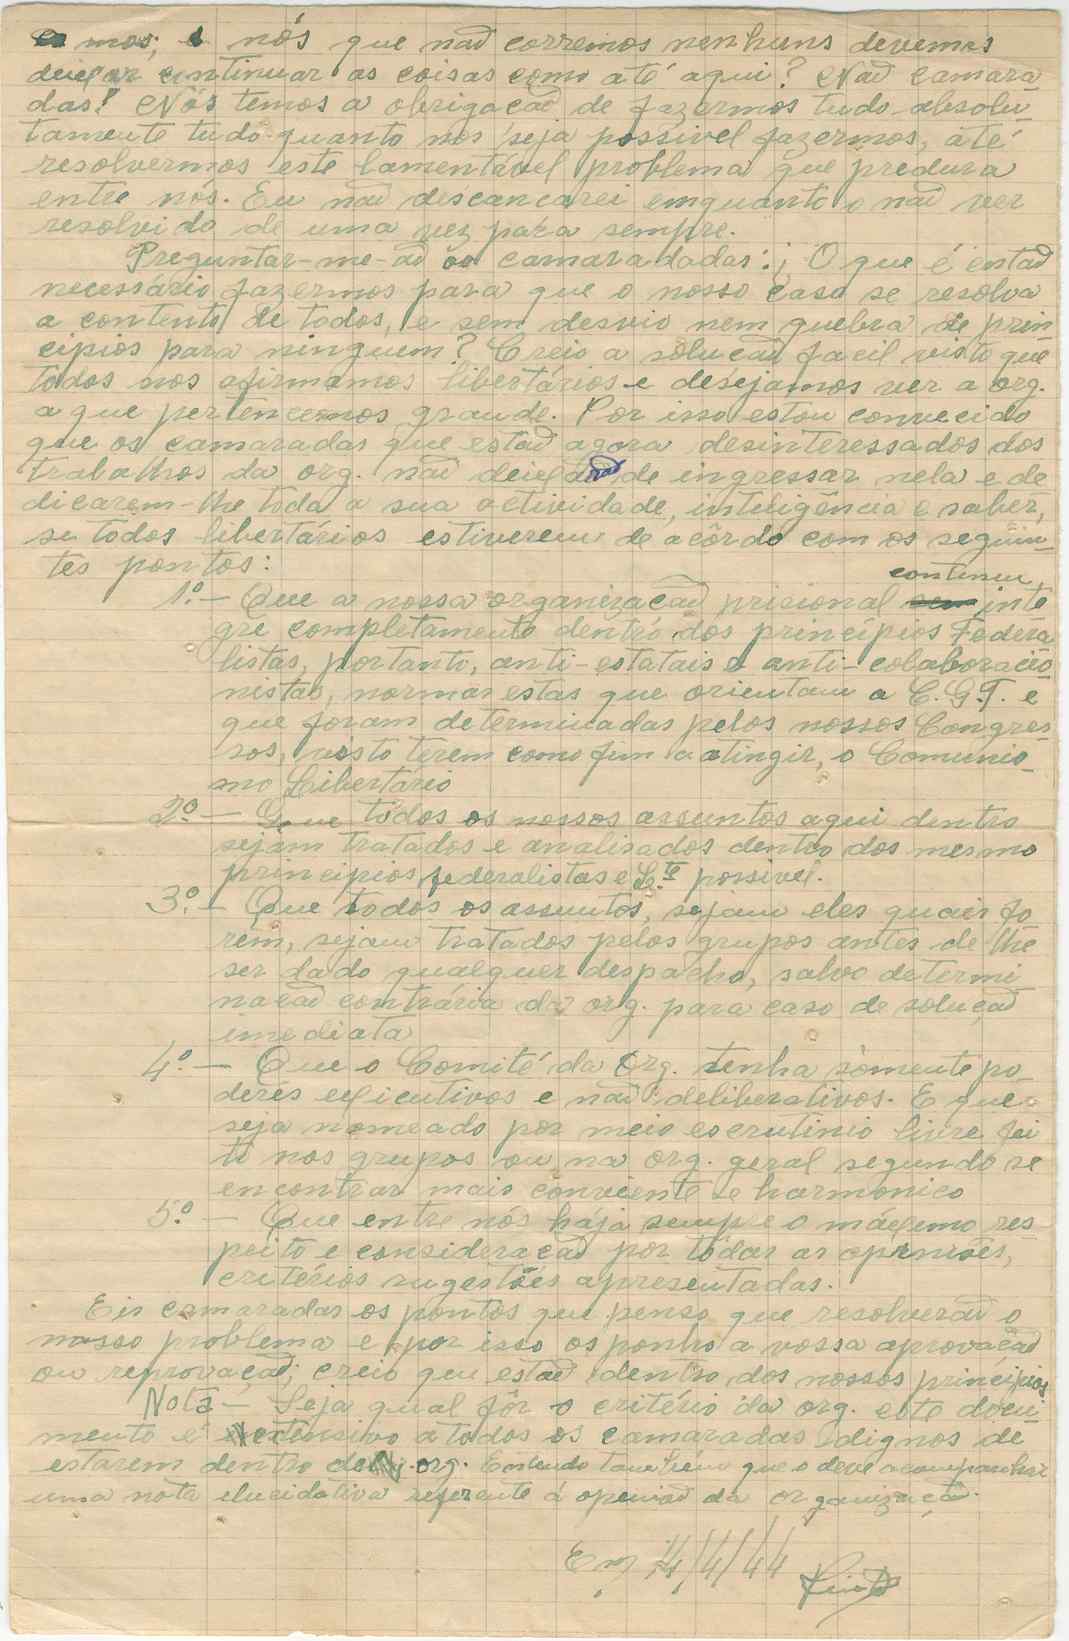 mos; e nós que não corremos nenhuns devemos
deixar continuar as coisas como até aqui? Não camara
das! Nós temos a obrigação de fazermos tudo absolu-
tamente tudo quanto nos seja possivel fazermos, até
resolvermos este lamentável problema que predura
entre nós. Eu não descançarei emquanto o não ver
resolvido de uma vez para sempre.
Preguntar-me-ão os camaradadas: ¡O que é entaõ
necessário fazermos para que o nosso caso se resolva
a contento de todos, e sem desvio nem quebra de prin
cipios para ninguem? Creio a solução facil visto que
todos nos afirmamos libertários e desejamos ver a org.
a que pertencemos grande. Por isso estou convecido
que os camaradas que estão agora desinteressados dos
trabalhos da org. não deixarão de ingressar nela e de
dicarem-lhe toda a sua actividade, inteligência e saber,
se todos libertários estiverem de acôrdo com os seguin-
tes pontos:
continue,
1.º — Que a nossa organização prisional sem inte
gre completamente dentro dos princípios Federa
listas, portanto, anti-estatais e anti-colaboracio-
nistas, normas estas que orientam a C.G.T. e
que foram determinadas pelos nossos Congres
sos, visto terem como fim a atingir, o Comunis-
mo Libertário
2.º — Que todos os nossos assuntos aqui dentro
sejam tratados e analisados dentro dos mesmo
principios federalistas e L.te possivel.
3.º — Que todos os assuntos, sejam eles quais fo
rem, sejam tratados pelos grupos antes de lhe
ser dado qualquer despacho, salvo determi
nação contrária da org. para caso de solução
imediata
4.º — Que o Comité da Org. tenha sómente po-
deres exicutivos e não deliberativos. E que
seja nomeado por meio escrutinio livre fei
to nos grupos ou na org. geral segundo se
encontrar mais conviente e harmonico
5.º — Que entre nós hája sempre o máximo res
peito e consideração por todas as opiniões,
critérios sugestões apresentadas.
Eis camaradas os pontos que penso que resolverão o
nosso problema e por isso os ponho a vossa aprovação
ou reprovação; creio que estão dentro dos nossos princípios
Nota — Seja qual fôr o critério da org. este docu-
mento é extensivo a todos os camaradas dignos de
estarem dentro da org. Entendo tambem que o deve acompanhar
uma nota elucidativa referente á openião da organização.
Em 14/4/44